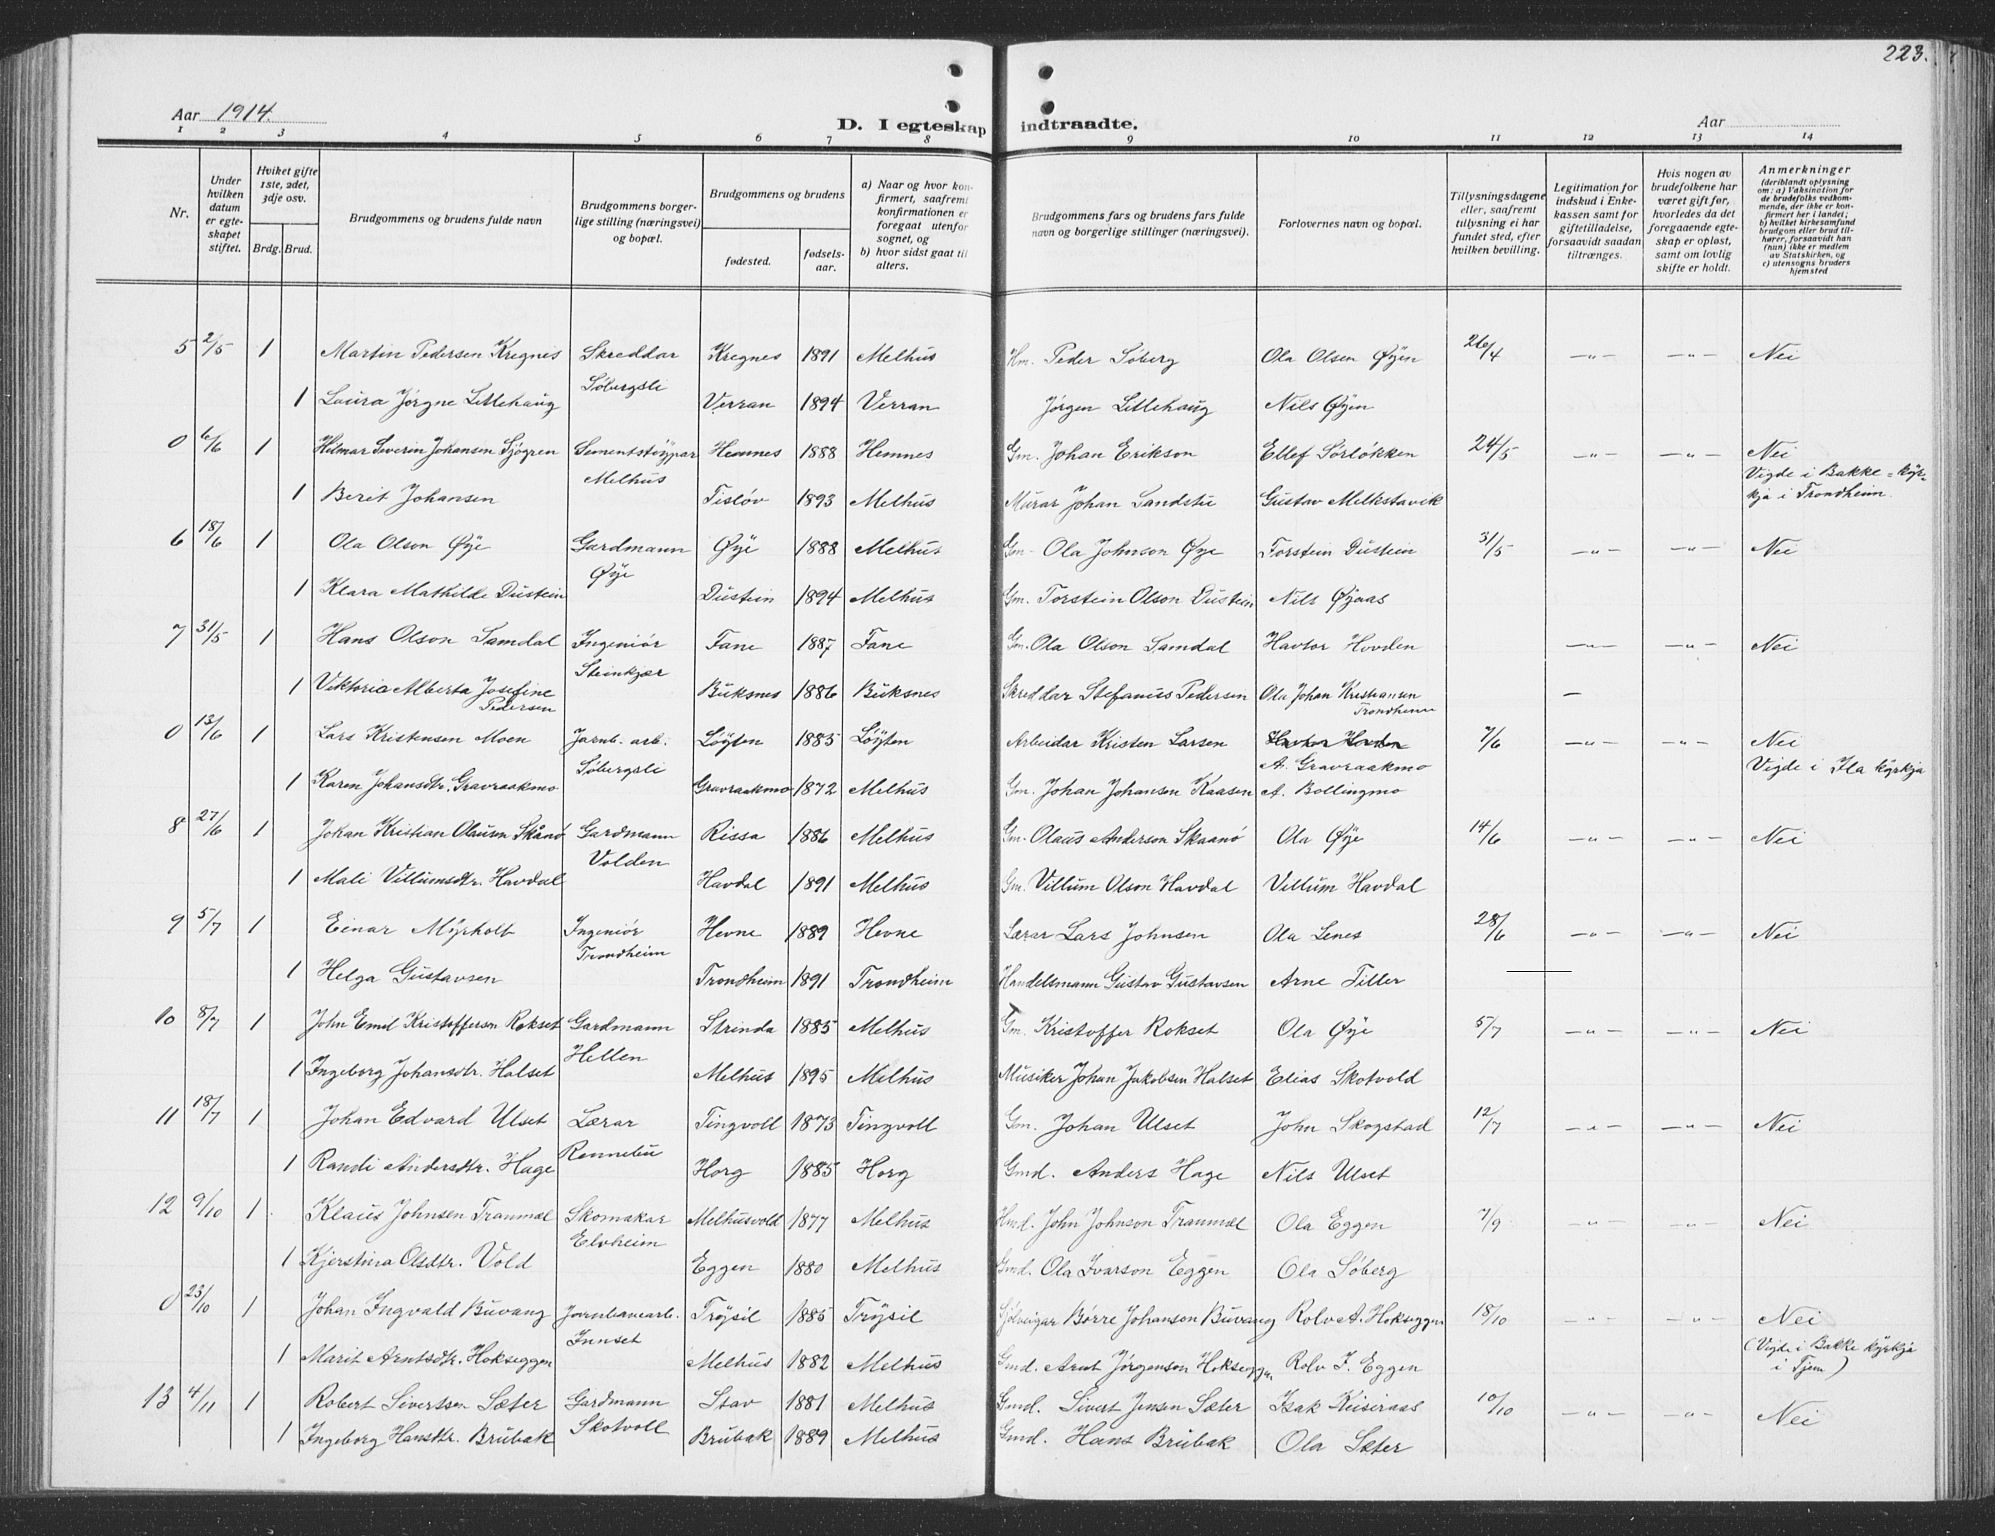 223.
Aar 1914.
D. I egteskap indtraadte.
Aar
1 2 3 4 5 6 7 8 9 10 11 12 13 14
Nr.
Under hvilken datum er egteskapet stiftet.
Hviket gifte 1ste, 2det, 3dje osv.
Brdg. Brud.
Brudgommens og brudens fulde navn
Brudgommens borgerlige stilling (næringsvei) og bopæl.
Brudgommens og brudens
fødested.
fødselsaar.
a) Naar og hvor konfirmert, saafremt konfirmationen er foregaat utenfor sognet, og
b) hvor sidst gaat til alters.
Brudgommens fars og brudens fars fulde navn og borgerlige stillinger (næringsvei).
Forlovernes navn og bopæl.
Tillysningsdagene eller, saafremt tillysning ei har fundet sted, efter hvilken bevilling.
Legitimation for indskud i Enkekassen samt for giftetilladelse, forsaavidt saadan tiltrænges.
Hvis nogen av brudefolkene har været gift før, hvorledes da det foregaaende egteskap er opløst, samt om lovlig skifte er holdt.
Anmerkninger
(deriblandt oplysning om: a) Vaksination for de brudefolks vedkommende, der ikke er konfirmert her i landet; b) hvilket kirkesamfund brudgom eller brud tilhører, forsaavidt han (hun) ikke er medlem av Statskirken, og c) utensogns bruders hjemsted
5 2/5 1 Martin Pedersen Kregnes Skreddar Kregnes 1891 Melhus Hm. Peder Søberg Ola Olsen Øyen 26/4 —"— —"— Nei
Søbergsli
1 Laura Jørgne Litlehaug Verran 1894 Verran Jørgen Litlehaug Nils Øyen
0 6/6 1 Hilmar Severin Johansen Sjøgren Sementstøypar Hemnes 1888 Hemnes Gm. Johan Erikson Ellef Sørløkken 24/5 —"— —"— Nei
Melhus Vigde i Bakke=kyr-
1 Berit Johansen Tisløv 1893 Melhus Murar Johan Sandstu Gustav Melkstavik kja i Trondheim.
6 18/6 1 Ola Olson Øye Gardmann Øye 1888 Melhus Gm. Ola Johnson Øye Torstein Dustein 31/5 —"— —"— Nei
Øye
1 Klara Mathilde Dustein Dustein 1894 Melhus Gm. Torstein Olson Dustein Nils Øyaas
7 31/5 1 Hans Olson Samdal Ingeniør Fane 1887 Fane Gm. Ola Olson Samdal Havtor Hovden —"— —"— Nei
Steinkjær
1 Viktoria Alberta Josefine Buksnes 1886 Buksnes Skreddar Stefanus Pedersen Ola Johan Kristiansen —
Pedersen Trondheim
0 13/6 1 Lars Kristensen Moen Jarnb. arb. Løyten 1885 Løyten Arbeidar Kristen Larsen Havtor Hovden 7/6 —"— —"— Nei
Søbergsli A. Gravraakmo Vigde i Ila kyrkja
1 Karen Johansdtr. Gravraakmo Gravraakmo 1872 Melhus Gm. Johan Johansen Kaasen A. Bollingmo
8 27/6 1 Johan Kristian Olausn Skånø Gardmann Rissa 1886 Melhus Gm. Olaus Anderson Skaanø Ola Øye 14/6 —"— —"— Nei
Volden
1 Mali Villumsdtr. Havdal Havdal 1891 Melhus Gm. Villum Olson Havdal Villum Havdal
9 5/7 1 Einar Myrholt Ingeniør Hevne 1889 Hevne Lærar Lars Johnsen Ola Lenes 28/6 —"— —"— Nei
Trondheim
1 Helga Gustavsen Trondheim 1891 Trondheim Handelsmann Gustav Gustavsen Arne Tiller
10 8/7 1 John Emil Kristoffersen Rokset Gardmann Strinda 1885 Melhus Gm. Kristoffer Rokset Ola Øye 5/7 —"— —"— Nei
Hellen
1 Ingeborg Johansdtr. Halset Melhus 1895 Melhus Musiker Johan Jakobsen Halset Elias Skotvold
11 18/7 1 Johan Edvard Ulset Lærar Tingvoll 1873 Tingvoll Gm. Johan Ulset John Skogstad 12/7 —"— —"— Nei
Rennebu
1 Randi Andersdtr. Hage Horg 1885 Horg Gmd. Anders Hage Nils Ulset
12 9/10 1 Klaus Johnsen Tranmæl Skomakar Melhusvold 1877 Melhus Hmd. John Johnson Tranmæl Ola Eggen 7/9 —"— —"— Nei
Elvheim
1 Kjerstina Olsdtr. Vold Eggen 1880 Melhus Gmd. Ola Ivarson Eggen Ola Søberg
0 23/10 1 Johan Ingvald Buvang Jarnbanearb. Trysil 1885 Trysil Sjølveigar Børre Johanson Buvang Rolv A. Hokseggen 18/10 —"— —"— Nei
Innset (Vigde i Bakke kyrkja
1 Marit Arntsdtr. Hokseggen Melhus 1882 Melhus Gmd. Arnt Jørgenson Hokseggen Rolv J. Eggen i Tjem)
13 4/11 1 Robert Sivertsen Sæter Gardmann Stav 1881 Melhus Gmd. Sivert Jensen Sæter Isak Keiseraas 10/10 —"— —"— Nei
Skotvoll
1 Ingeborg Hansdtr. Brubak Brubak 1889 Melhus Gmd. Hans Brubak Ola Sæter